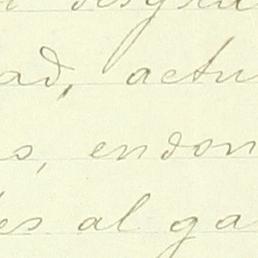 ad, actu
s, endon
es al ga